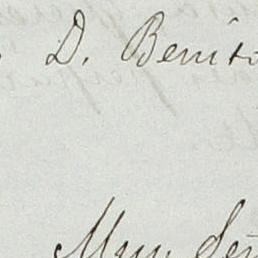 D. Benito
Muy Señ